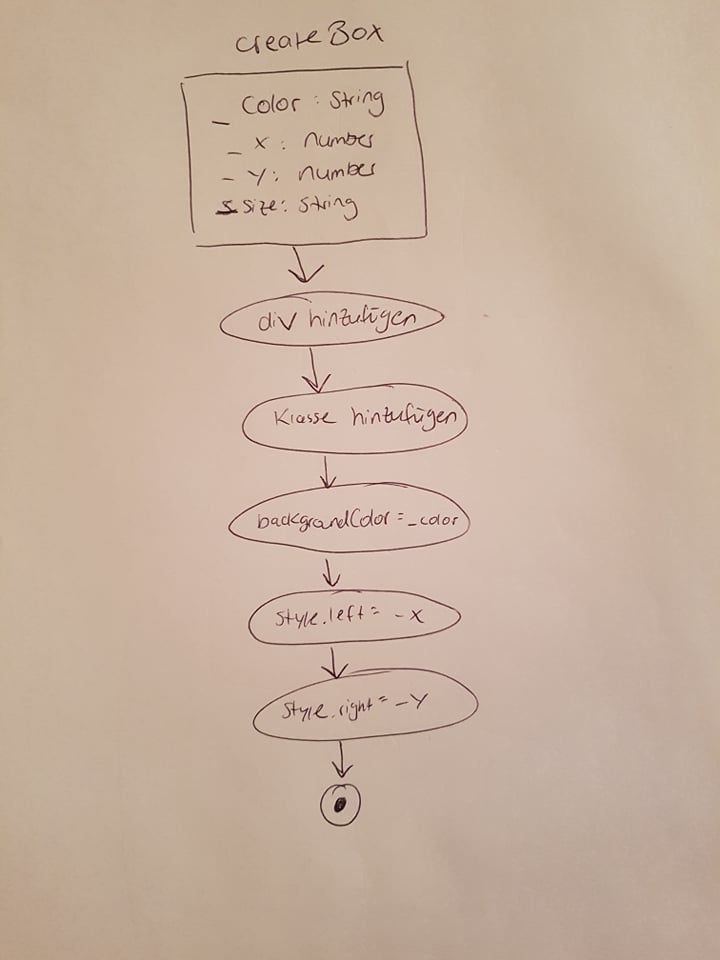 createBox
_ Color : String
_ X : number
_ Y : number
_ size : String
div hinzufügen
Klasse hinzufügen
backgrandColor = _color
Style.left = _X
Style.right = _Y